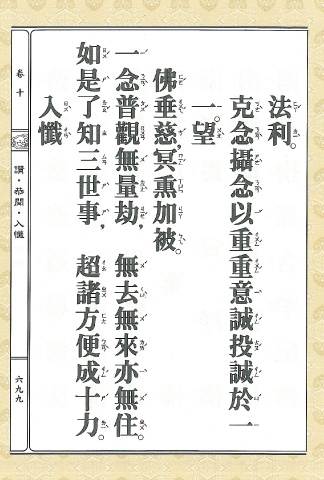 法利。
克念攝念以,重重意誠投誠於一
一。望
佛垂慈,冥熏加被。
一念普觀無量劫,無去無來亦無住。
如是了知三世事,超諸方便成十力。
入懺
卷十
讚·恭聞·入懺
六九九